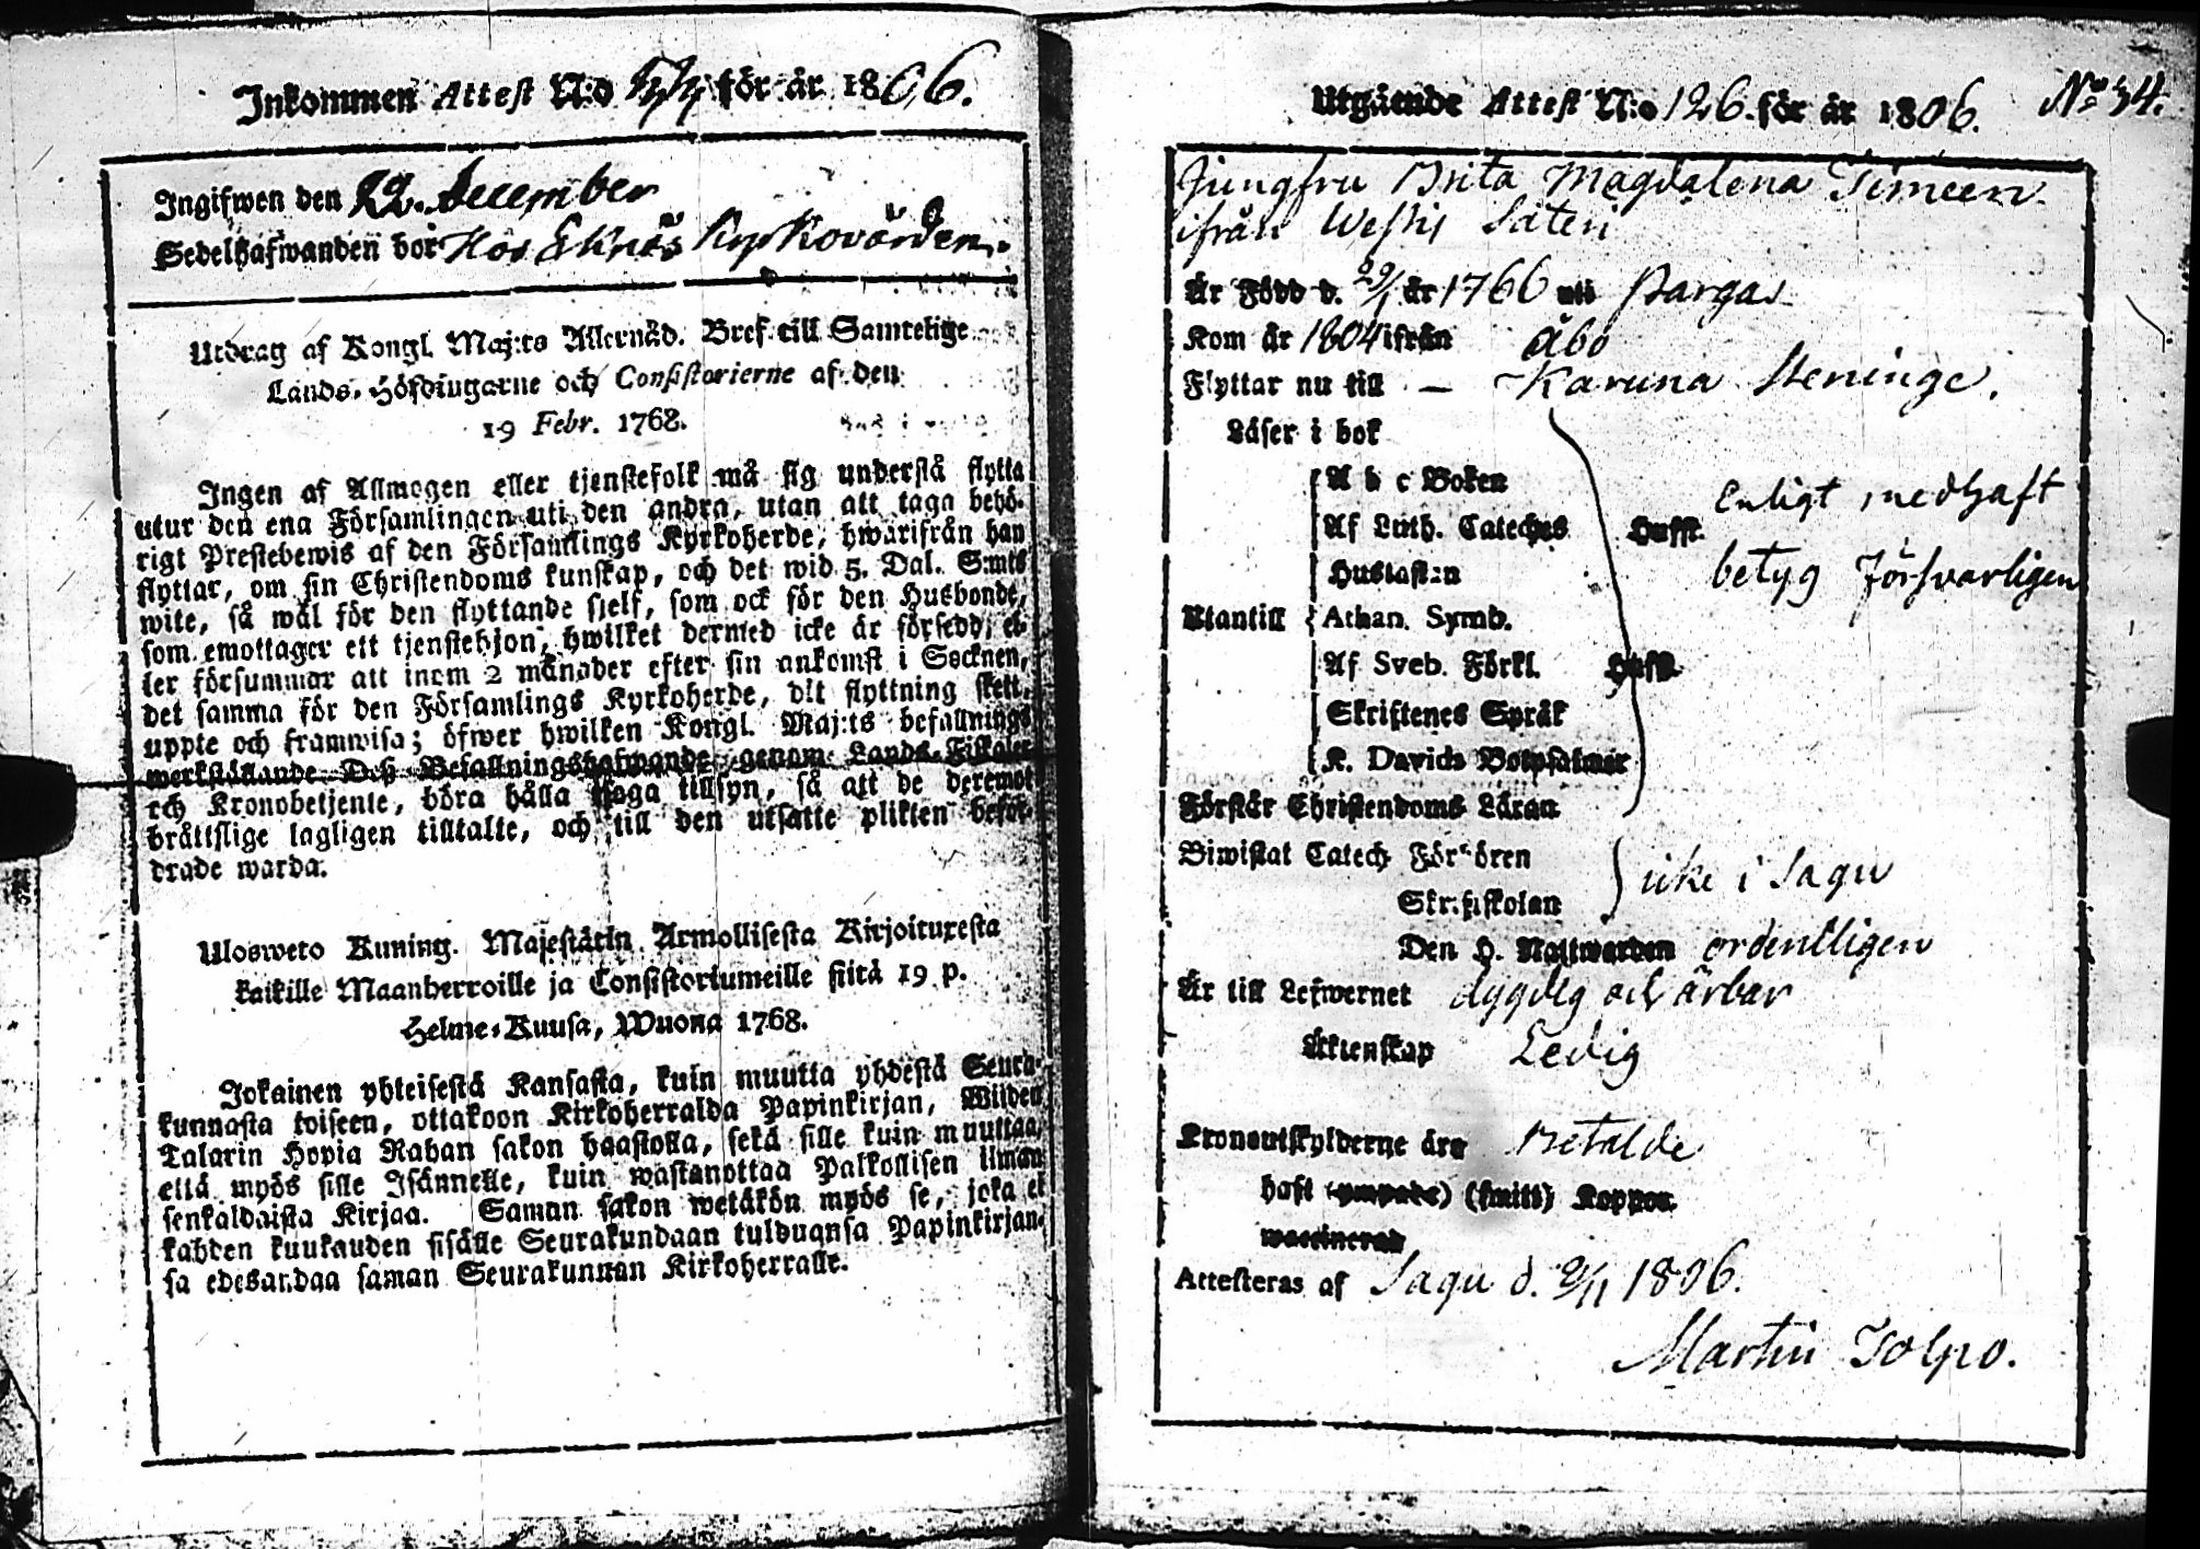 Inkommen Attest N:o för år 1806.
Ingifwen den 22. December
Sedelhafwanden bor Hos Eknäs Kyrkovärden.
Utdrag af Kongl. Maj:ts Allernåd. Bref till Samtelige
Lands-Höfdingarne och Consistorierne af den
19 Febr. 1768.
Ingen af Allmogen eller tjenstefolk må sig understå flytta
utur den ena Församlingen uti den andra, utan att taga behö-
rigt Prestebewis af den Församlings Kyrkoherde, hwarifrån han
flyttar, om sin Christendoms kunskap, och det wid 5. Dal. S:mts
wite, så wäl för den flyttande sjelf, som ock för den Husbonde,
som emottager ett tjenstehjon, hwilket dermed icke är försedd, el-
ler försummar att inom 2 månader efter sin ankomst i Socknen,
det samma för den Församlings Kyrkoherde, dit flyttning skett,
uppte och framwisa; öfwer hwilken Kongl. Maj:ts befallnings
werkställande Deß Befallningshafwande genom Lands-Fiskaler
och Kronobetjente, böra hålla noga tillsyn, så att de deremot
bråttslige lagligen tilltalte, och till den utsatte plikten beför-
drade warda.
Ulosweto Kuning. Majestätin Armollisesta Kirjoituxesta
kaikille Maanherroille ja Consistoriumeille siitä 19 p.
Helme-Kuusa, Wuona 1768.
Jokainen yhteisestä Kansasta, kuin muutta yhdestä Seura-
kunnasta toiseen, ottakoon Kirkoherralda Papinkirjan, Wiiden
Talarin Hopia Rahan sakon haastolla, sekä sille kuin muuttaa,
että myös sille Isännelle, kuin wastanottaa Palkollisen ilman
senkaldaista Kirjaa. Saman sakon wetäkön myös se, joka ei
kahden kuukauden sisälle Seurakundaan tulduansa Papinkirjan-
sa edesandaa saman Seurakunnan Kirkoherralle.
Utgående Attest N:o 126. för år 1806. No 34.
Jungfru Brita Magdalena Simeen
ifrån Westis Säteri
Är Född d. 29/1 år 1766 uti Pargas
Kom år 1804 ifrån Åbo
Flyttar nu till – Karuna Steninge.
Läser i bok
A b c Boken
Enligt medhaft
Af Luth. Cateches Hufft.
Hustaflan betyg försvarligen
Utantill Athan. Symb.
Af Sveb. Förkl. Hufft.
Skriftenes Språk
K. Davids Botpsalmer
Förstår Christendoms Läran
Biwistat Catech. Förhören
icke i Sagu
Skriftskolan
Den H. Nattwarden ordentligen
Är till Lefwernet dygdig och ärbar
Äktenskap Ledig
Kronoutskylderne äro Betalde
haft (ympade) (smitt) Koppor.
waccinerad
Attesteras af Sagu d. 9/11 1806.
Martin Tolpo.